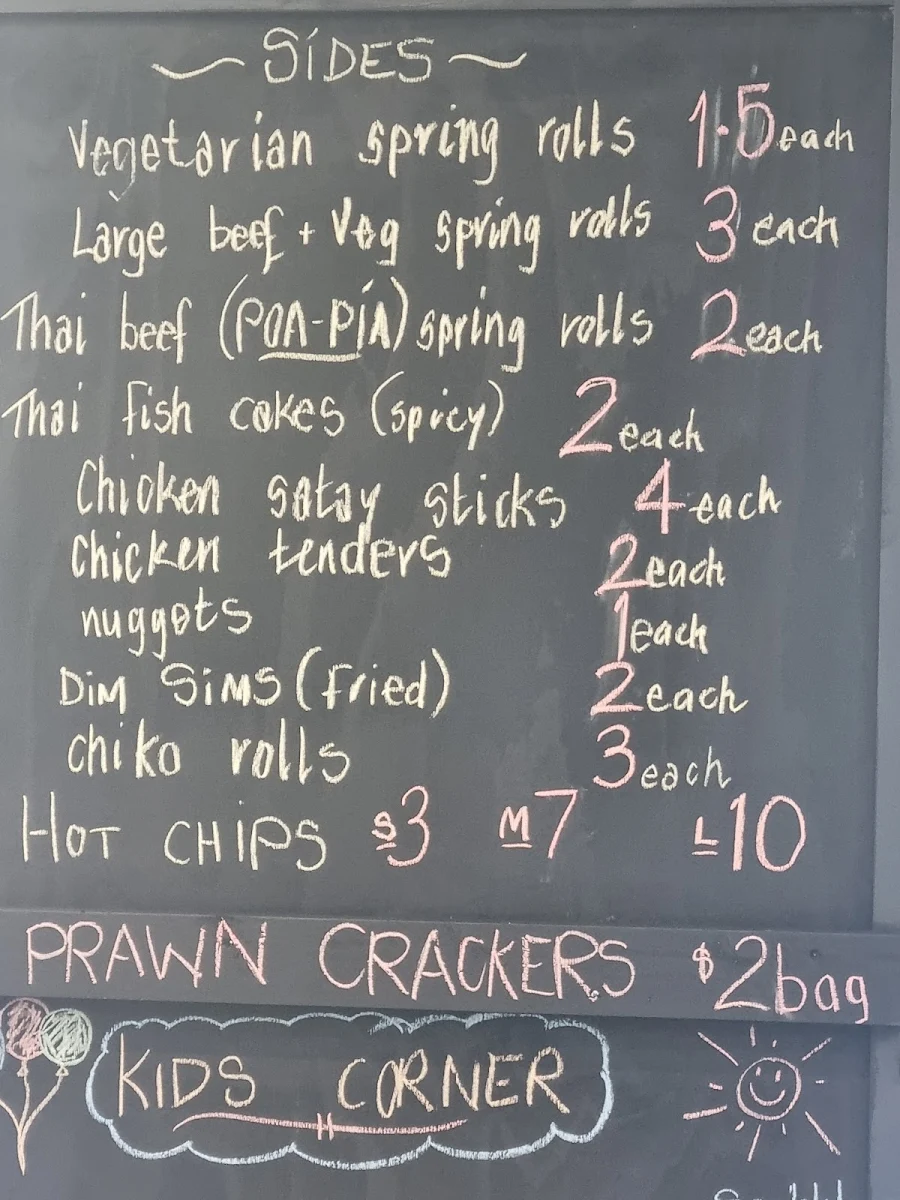 ~ SIDES ~
Vegetarian spring rolls 1.5 each
Large beef + Veg spring rolls 3 each
Thai beef (POA-PIA) spring rolls 2 each
Thai fish cakes (spicy) 2 each
Chicken satay sticks 4 each
Chicken tenders 2 each
nuggets 1 each
Dim Sims (fried) 2 each
chiko rolls 3 each
HOT CHIPS S 3 M 7 L 10
PRAWN CRACKERS $2 bag
KIDS CORNER